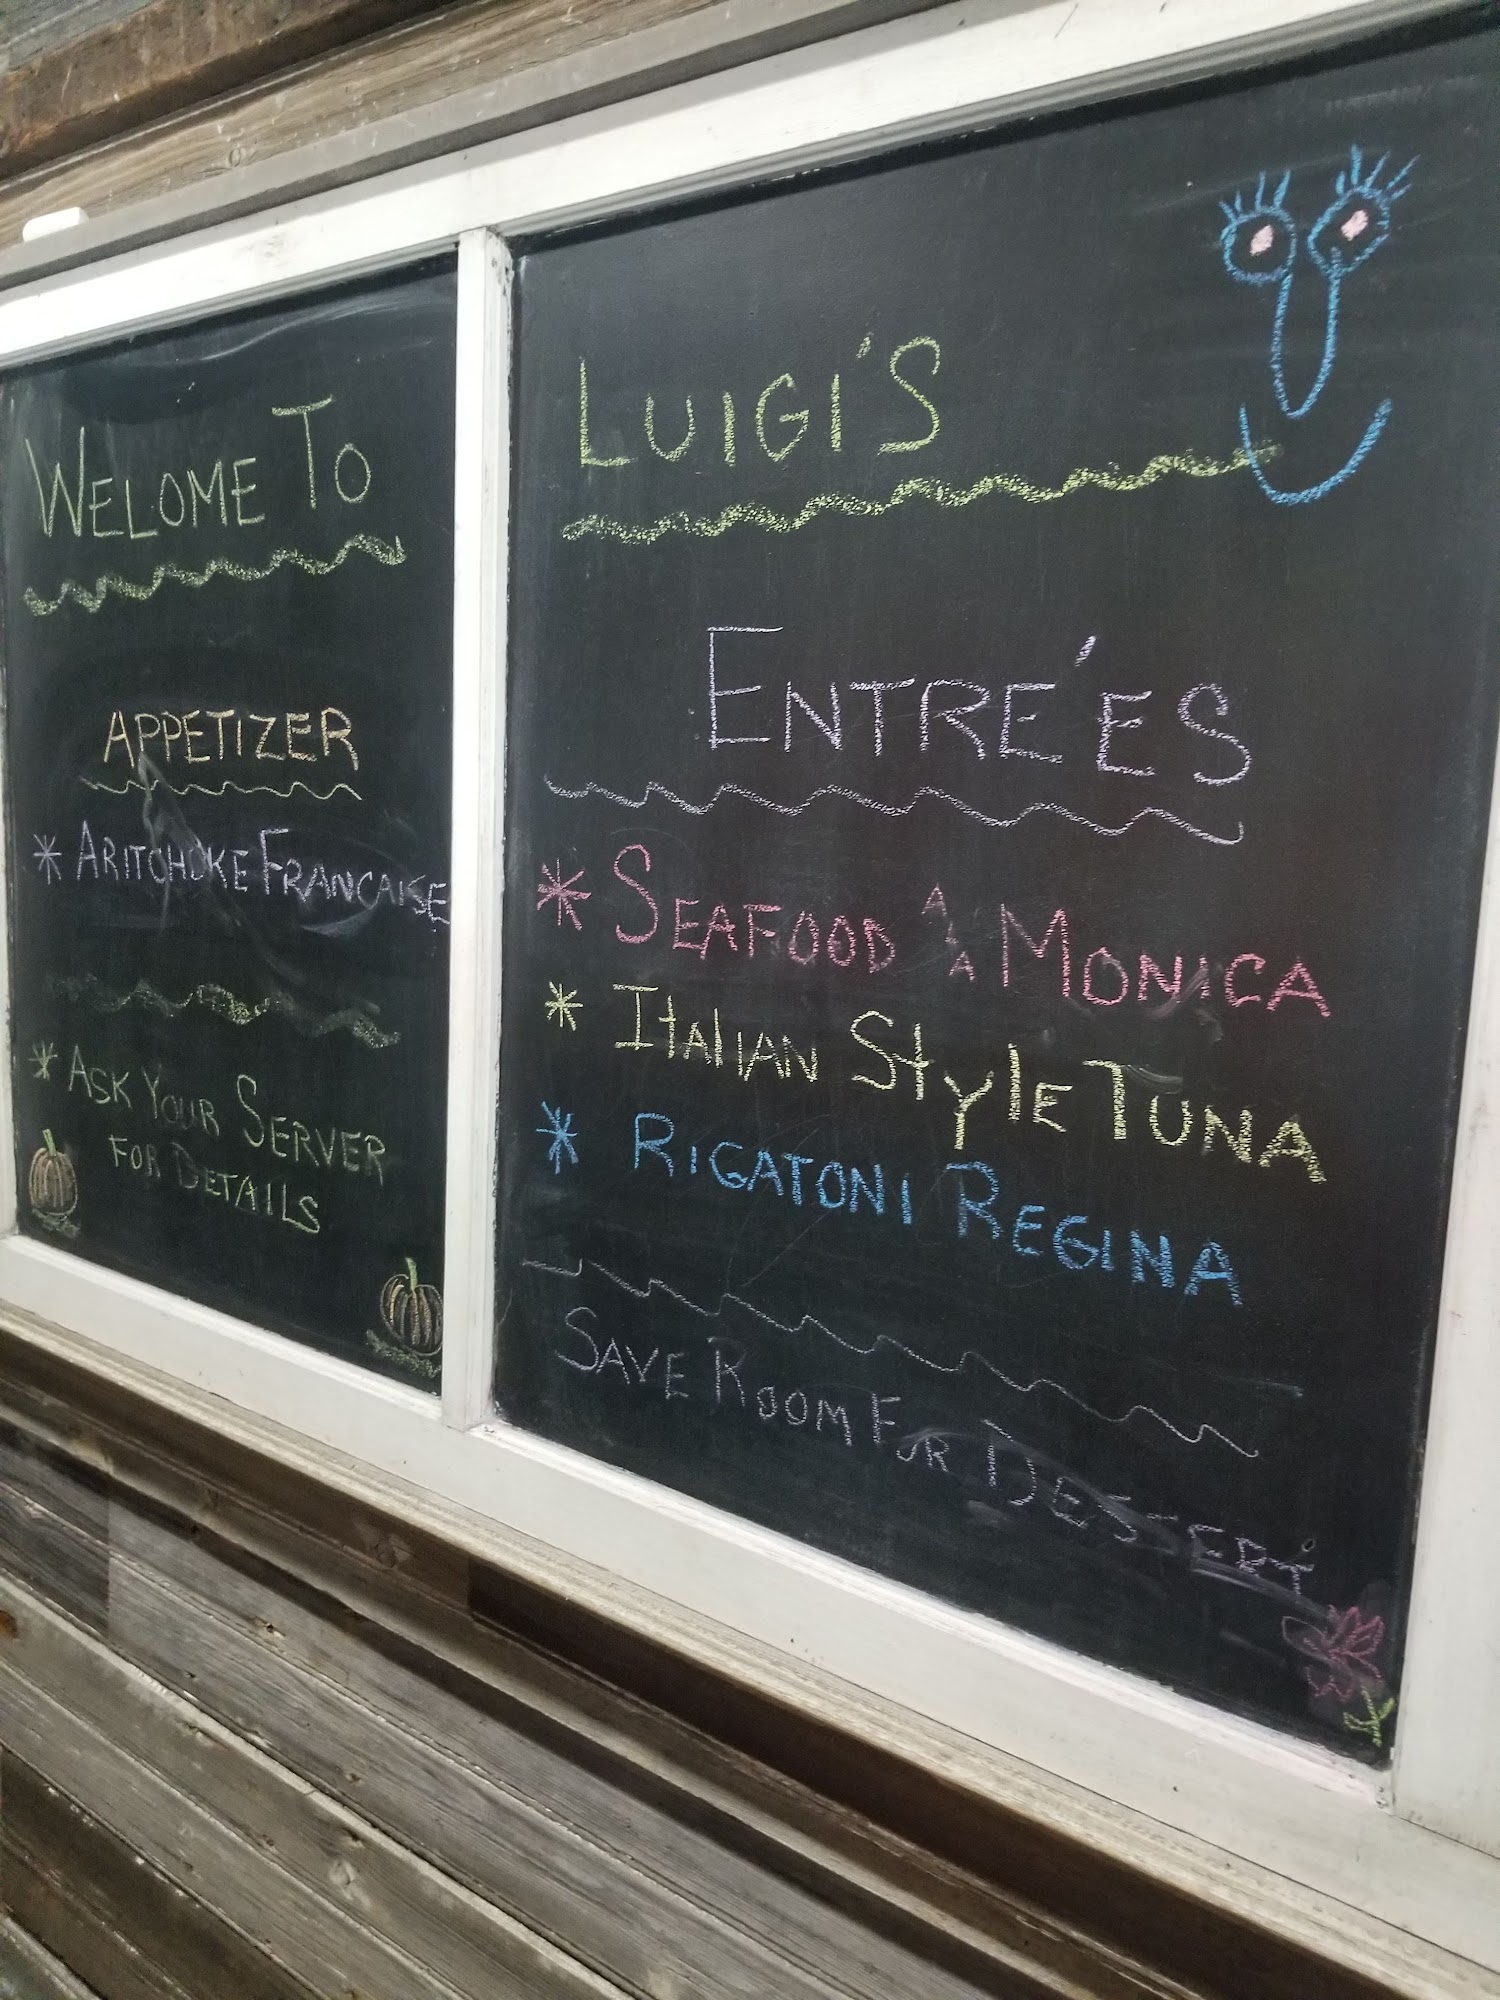 WELOME TO
APPETIZER
* ARITCHOKE FRANCAISE
* ASK YOUR SERVER
FOR DETAILS
LUIGI'S
ENTRE'ES
* SEAFOOD A LA MONICA
* ITALIAN STYLE TUNA
* RIGATONI REGINA
SAVE ROOM FOR DESSERT